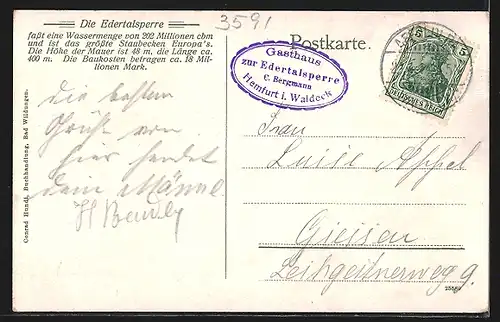 Die Edertalsperre
faßt eine Wassermenge von 202 Millionen cbm
und ist das größte Staubecken Europa's.
Die Höhe der Mauer ist 48 m, die Länge ca.
400 m. Die Baukosten betragen ca. 18 Mil-
lionen Mark.
3591
Postkarte.
Gasthaus
zur Edertalsperre
C. Bergmann
Hemfurt i. Waldeck
5 5
DEUTSCHES REICH
Die besten
Grüße von
hier sendet
dein Männe
Frau
Luise Appel
Giessen
Leihgesternerweg 9.
Conrad Hundt, Buchhandlung, Bad Wildungen.